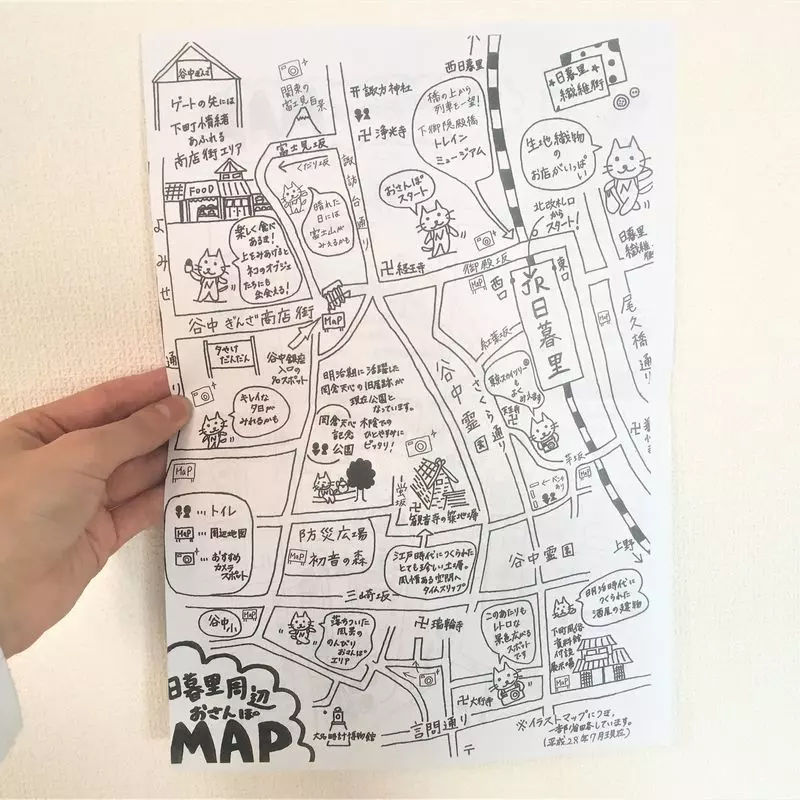 谷中ぎんざ
ゲートの先には
下町情緒
あふれる
商店街エリア
関東の
富士見百景
富士見坂
←くだり坂
諏訪台通り
諏方神社
浄光寺
西日暮里
橋の上から
列車を一望!
下御隠殿橋
トレイン
ミュージアム
日暮里
繊維街
生地織物
の
お店がいっぱい
おさんぽ
スタート
北改札口
から
スタート!
FOOD
晴れた
日には
富士山が
みえるかも
楽しく食べ
あるき!
上をみあげると
ネコのオブジェ
たちにも
出会える!
よみせ
通り
経王寺
御殿坂
MaP
西口
東口
JR日暮里
日暮里
繊維街
尾久橋通り
MaP
谷中ぎんざ商店街
MaP
夕やけ
だんだん
谷中銀座
入口の
キレイな
夕日が
みれるかも
明治期に活躍した
岡倉天心の旧居跡が
現在公園と
なっています。
岡倉天心
記念
公園
木陰での
ひとやすみに
ピッタリ!
谷中霊園
さくら通り
紅葉坂
天王寺
芋坂
MaP
MaP
…トイレ
MaP…周辺地図
…おすすめ
カメラ
スポット
防災広場
MaP 初音の森
蛍坂
観音寺の築地塀
江戸時代につくられた
とても珍しい土塀。
風情ある空間へ
タイムスリップ
谷中霊園
上野
三崎坂
谷中小
MaP
落ちついた
風景の
のんびり
おさんぽ
エリア
瑞輪寺
このあたりも
レトロな
景色広がる
スポット
です
明治時代に
つくられた
酒屋の建物
下町風俗
資料館
付設
展示場
MaP
大行寺
日暮里周辺
おさんぽ
MAP
大名時計博物館
言問通り
※イラストマップにつき、
一部省略しています。
(平成28年7月現在)